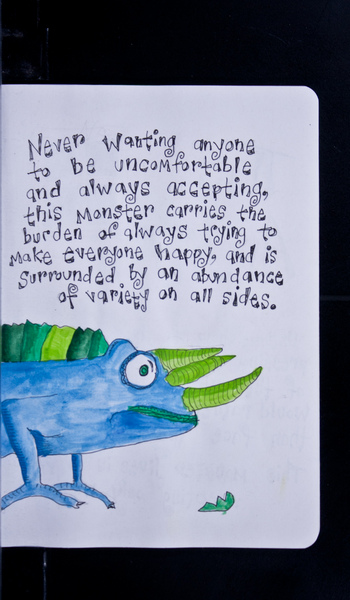 Never Wanting anyone
to be uncomfortable
and always accepting,
this Monster carries the
burden of always trying to
Make everyone happy, and is
Surrounded by an abundance
of variety on all sides.